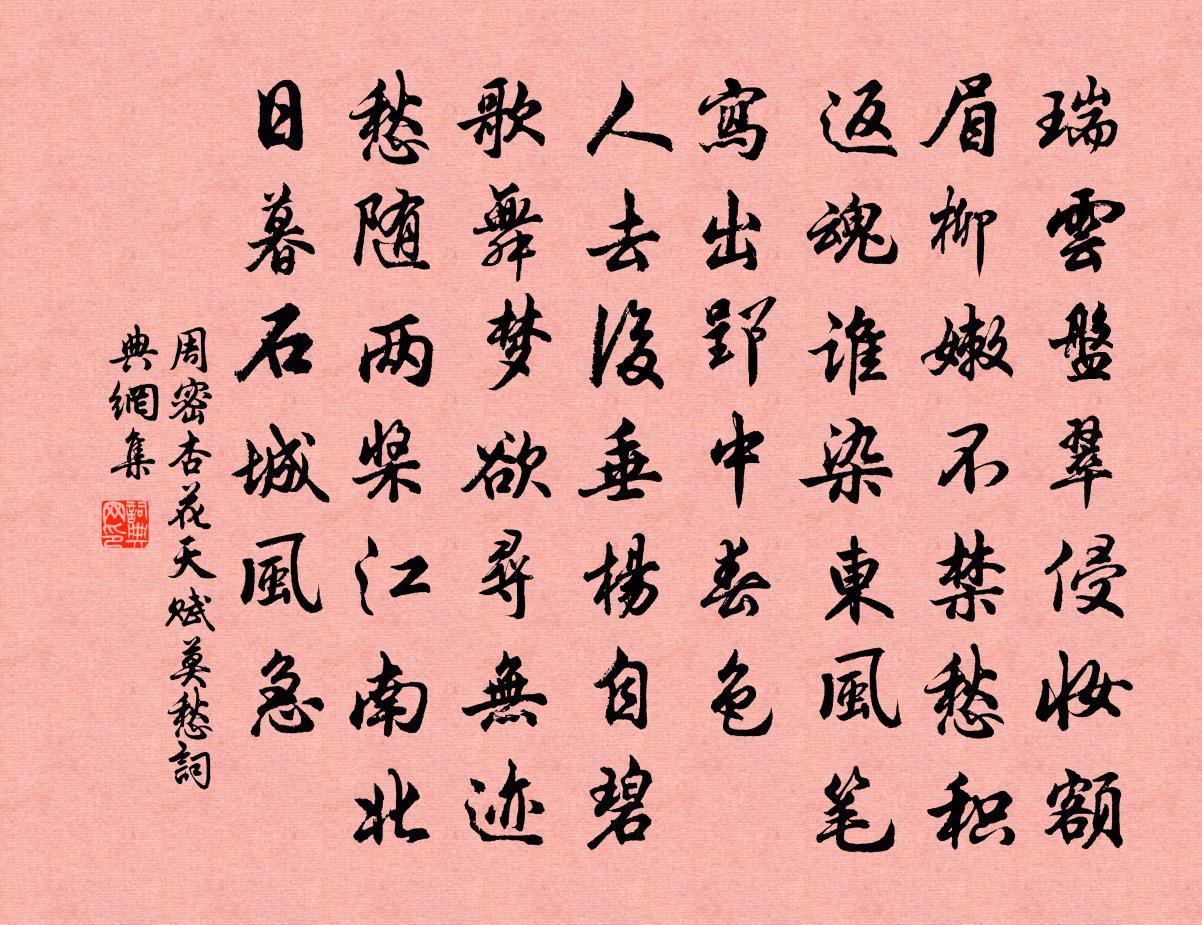 瑞雲盤翠侵妆額
眉柳嫩不禁愁积
返魂谁染東風笔
寫出郢中春色
人去後垂楊自碧
歌舞梦欲尋無迹
愁随两桨江南北
日暮石城風急
周密杏花天赋莫愁詞
典網集
詞典
网印